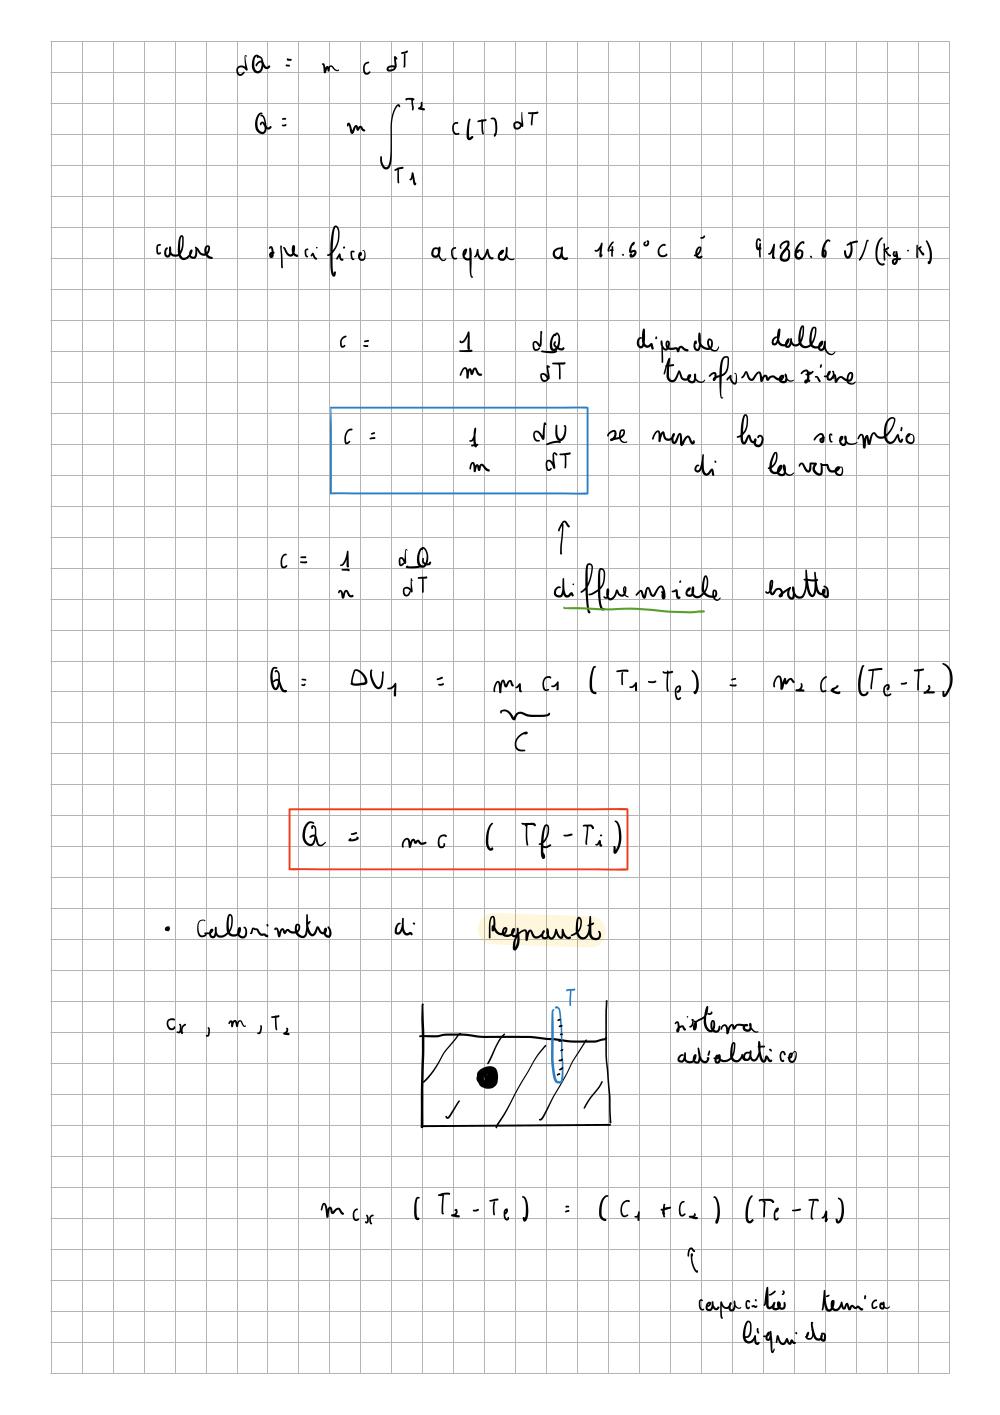 dQ = m c dT
Q = m ∫_{T1}^{T2} c(T) dT
calore specifico acqua a 14.5°C é 4186.6 J/(kg·K)
c = 1/m dQ/dT dipende dalla
trasformazione
c = 1/m dU/dT se non ho scambio
di lavoro
↑
c = 1/n dQ/dT differenziale esatto
Q = ΔU1 = m1 c1 (T1 - Te) = m2 c2 (Te - T2)
C
Q = mc (Tf - Ti)
• Calorimetro di Regnault
T
cx, m, T2 sistema
adiabatico
m cx (T2 - Te) = (C1 + C2) (Te - T1)
↑
capacitá termica
liquido